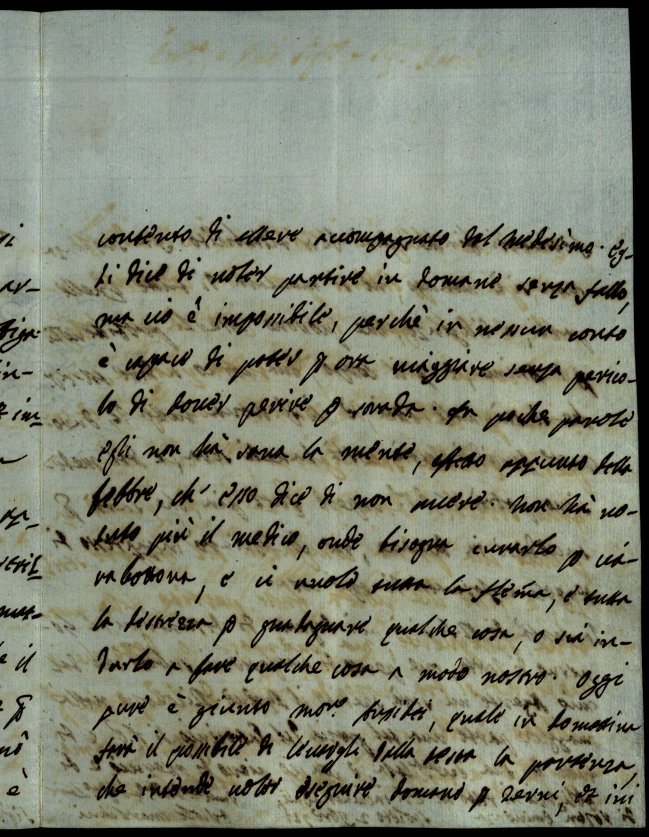 contento di essere accompagnato dal medesimo. Eg-
li dice di voler partire in domane senza fallo,
ma ciò è impossibile, perchè in nessun conto
è capace di poter p ora viaggiare senza perico-
lo di dover perire p strada. In poche parole
egli non hà sana la mente, effetto appunto della
febbre, ch' esso dice di non avere. Non hà vo-
luto più il medico, onde bisogna curarlo p
, e ci vuole tutta la flemma, e tutta
la destrezza p guadagnare qualche cosa, o sia in-
durlo a fare qualche cosa a modo nostro. Oggi
pure è giunto quale in domattina
farà il possibile di levargli dalla testa la partenza,
che intende voler eseguire domane p Terni, et ivi